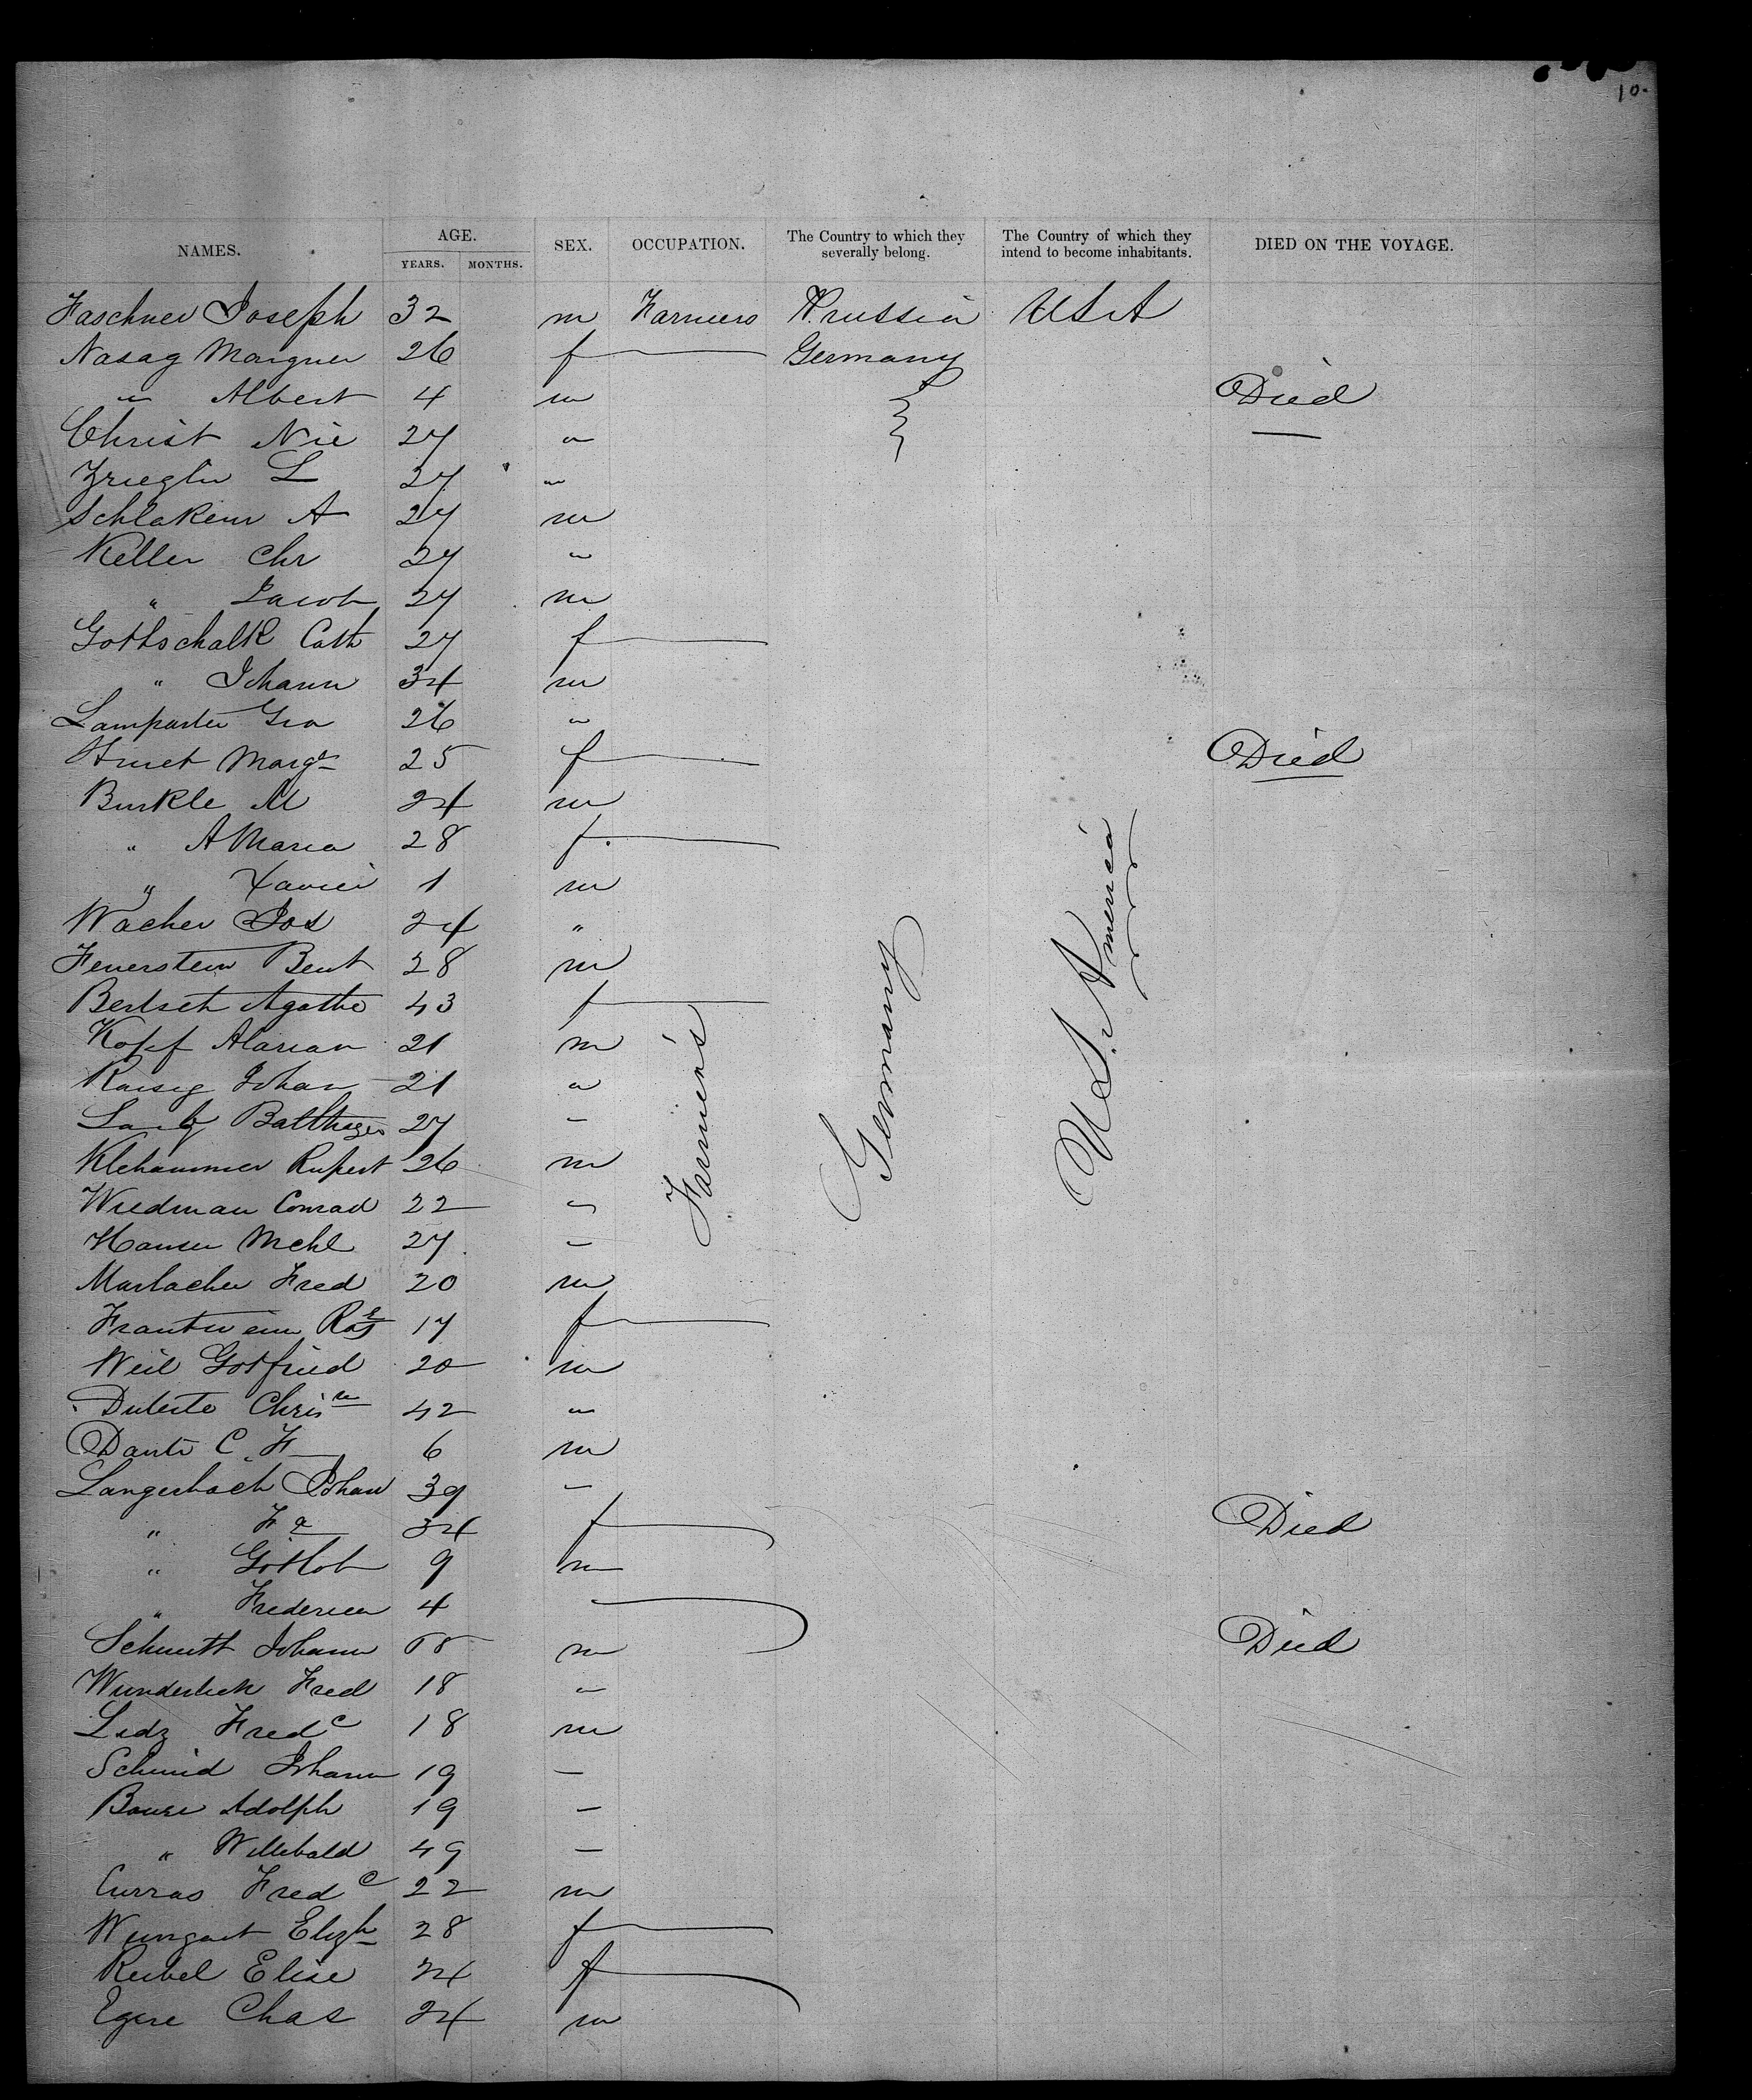 10.
NAMES. AGE. YEARS. MONTHS. SEX. OCCUPATION. The Country to which they severally belong. The Country of which they intend to become inhabitants. DIED ON THE VOYAGE.
Faschner Joseph 32 m Farmers Prussia USA
Nasag Margner 26 f Germany
" Albert 4 m Died
Christ Nic 27 "
L 27 "
Schlakenr A 27 m
Keller Chr 27 "
" Jacob 27 m
Gothschalk Cath 27 f
" Johann 34 m
Lamparter Geo 26 "
Marg 25 f Died
Burkle M 24 m
" A Maria 28 f
" Xavier 1 m
Wacher Jos 24 "
Feuerstein Bent 28 m
Bertsch Agathe 43 f
Kopf Alarian 21 m
Raisig Johan 21 "
Balthazer 27 "
Klehammer Rupert 26 m
Wiedman Conrad 22 "
Hauser Mchl 27 "
Marbacher Fred 20 m
17 f
Weil Gotfried 20 m
Chris 42 "
C F 6 m
Langerbach Johan 39 "
" Fa 34 f Died
" Gotlob 9 m
" Frederica 4
Schmitt Johann m Died
Wunderlich Fred 18 "
Ledz Fredc 18 m
Schmid Johann 19 "
Adolph 19 "
" Willebald 49 "
Curras Fredc 22 m
Wungart Elizh 28 f
Reibel Elise 24 f
Egere Chas 24 m
Farmers
Germany
U.S. America